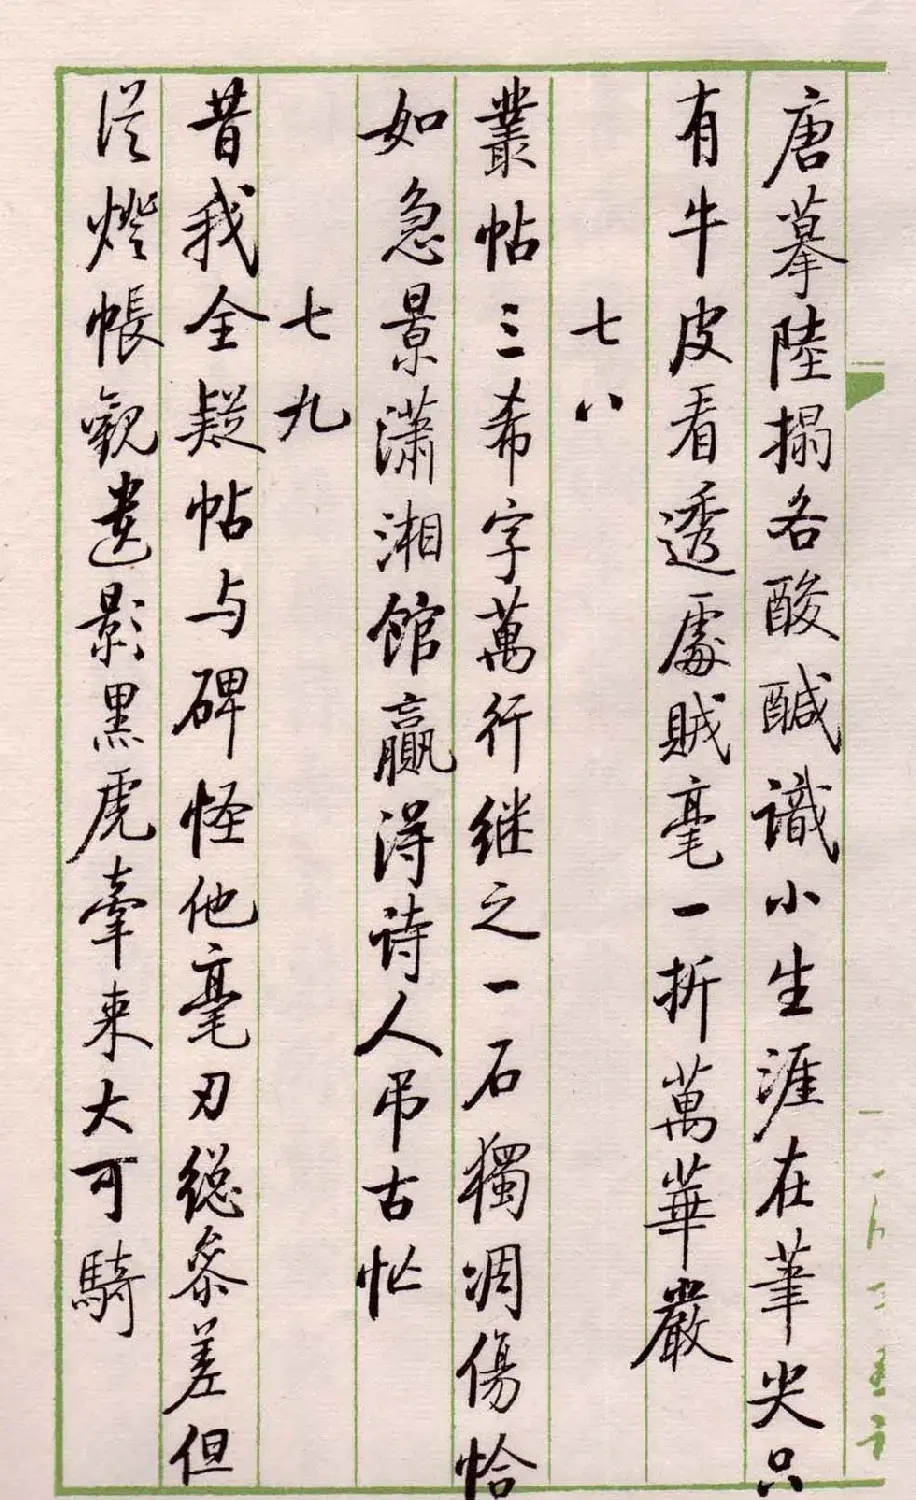 唐摹陸搨各酸醎識小生涯在筆尖只
有牛皮看透處賊毫一折萬華嚴
七八
叢帖三希字萬行继之一石獨凋傷恰
如急景瀟湘館贏得诗人吊古忙
七九
昔我全疑帖与碑怪他毫刃總參差但
從燈帳觀遺影黑虎牽来大可騎